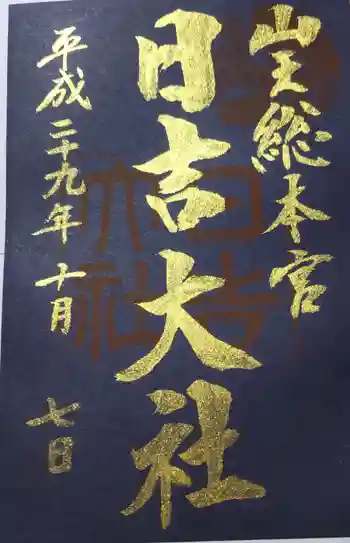 山王総本宮
日吉大社
平成二十九年十月七日
日吉
大社